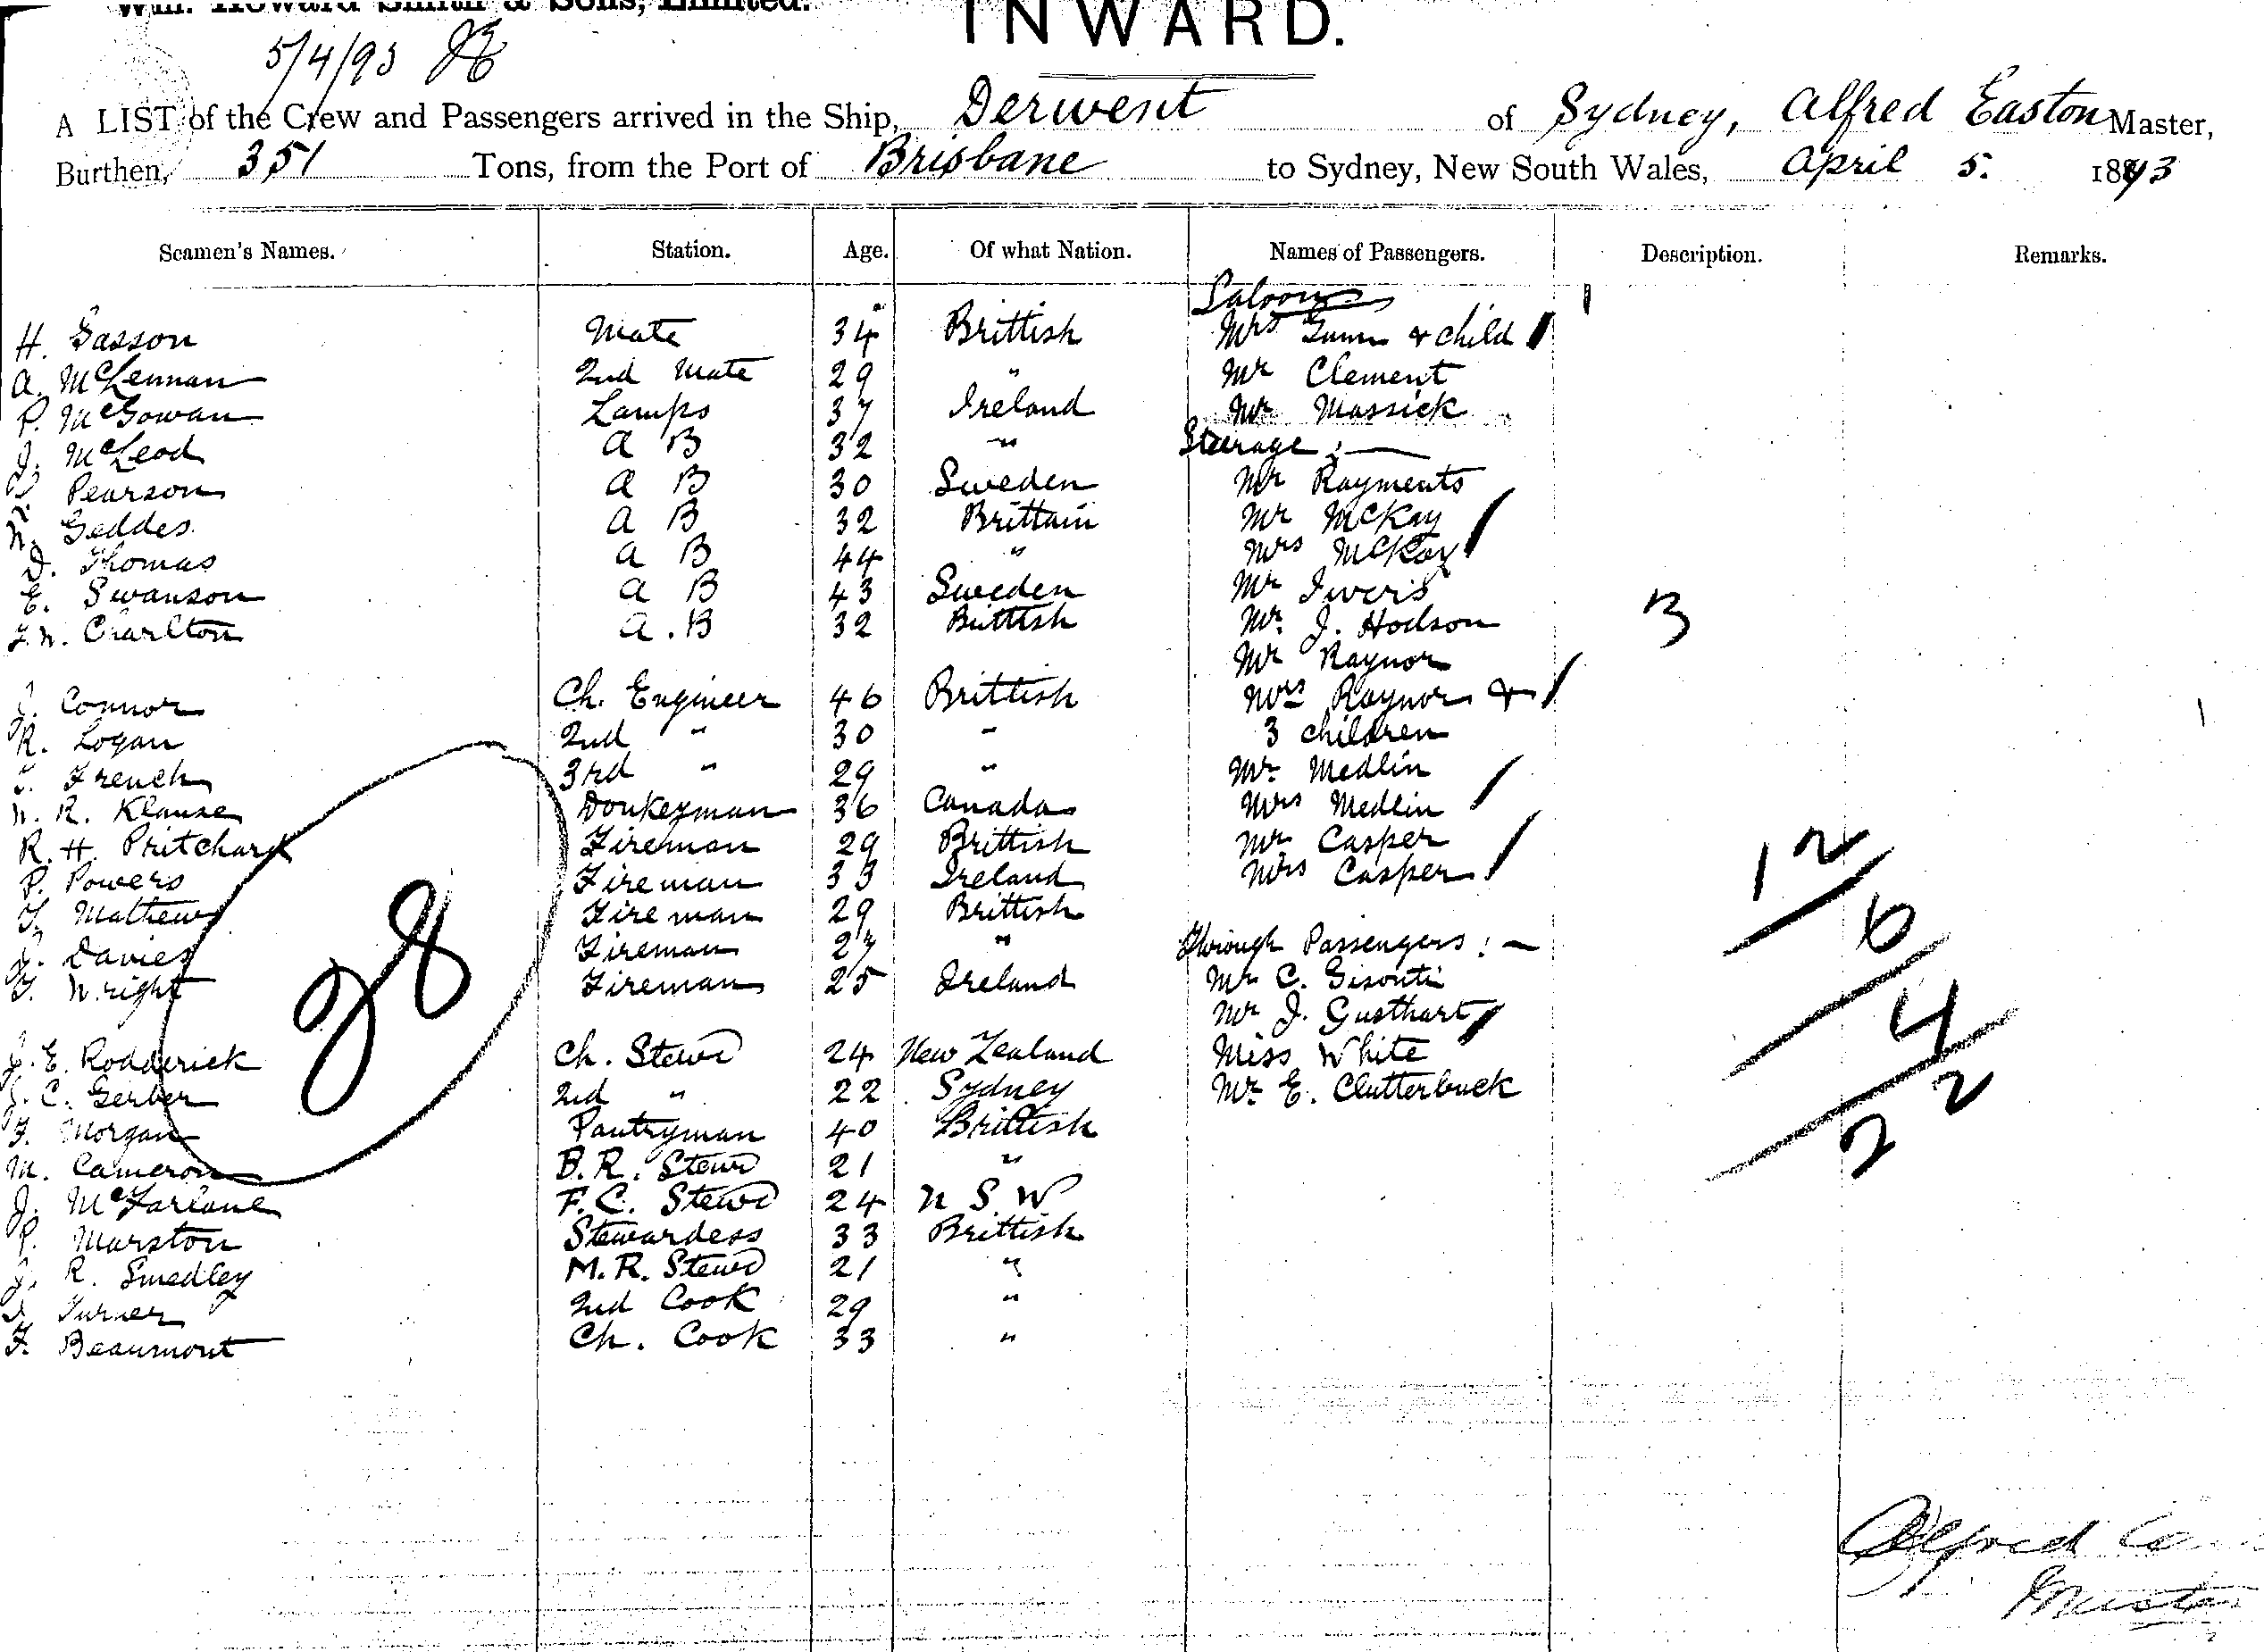 Wm. Howard Smith & Sons, Limited.
INWARD.
5/4/93
A LIST of the Crew and Passengers arrived in the Ship, Derwent of Sydney, Alfred Easton Master,
Burthen, 351 Tons, from the Port of Brisbane to Sydney, New South Wales, April 5. 1893
Seamen's Names. Station. Age. Of what Nation. Names of Passengers. Description. Remarks.
Saloon
H. Sasson Mate 34 Brittish Mrs Gunn & child
A. McLennan 2nd Mate 29 " Mr Clement
P. McGowan Lamps 37 Ireland Mr Massick
J. McLeod A B 32 " Steerage :—
Pearson A B 30 Sweden Mr Rayments
W. Geddes. A B 32 Brittain Mr McKay
D. Thomas A B 44 " Mrs McKay
E. Swanson A B 43 Sweden Mr Ivers
J. W. Charlton A. B 32 Brittish Mr. J. Hodson 13
Mr Raynor
J. Connor Ch. Engineer 46 Brittish Mrs Raynor &
R. Logan 2nd " 30 " 3 children
French 3rd " 29 " Mr Medlin
W. R. Klause Donkeyman 36 Canada Mrs Medlin
R. H. Pritchard Fireman 29 Brittish Mr Casper 12
P. Powers Fireman 33 Ireland Mrs Casper
T. Mathews Fireman 29 Brittish 6
J. Davies Fireman 27 " Through Passengers : —
T. Wright Fireman 25 Ireland Mr C. Gisonti
28
Mr J. Gusthart 4
J. E. Rodderick Ch. Stewd 24 New Zealand Miss White
J. C. Gerber 2nd " 22 Sydney Mr E. Clutterbuck
22
F. Morgan Pantryman 40 Brittish
M. Cameron B. R. Stewd 21 "
J. McFarlane F. C. Stewd 24 N S. W
P. Marston Stewardess 33 Brittish
J. R. Smedley M. R. Stewd 21 "
J. Turner 2nd Cook 29 "
F. Beaumont Ch. Cook 33 "
Alfred
Master